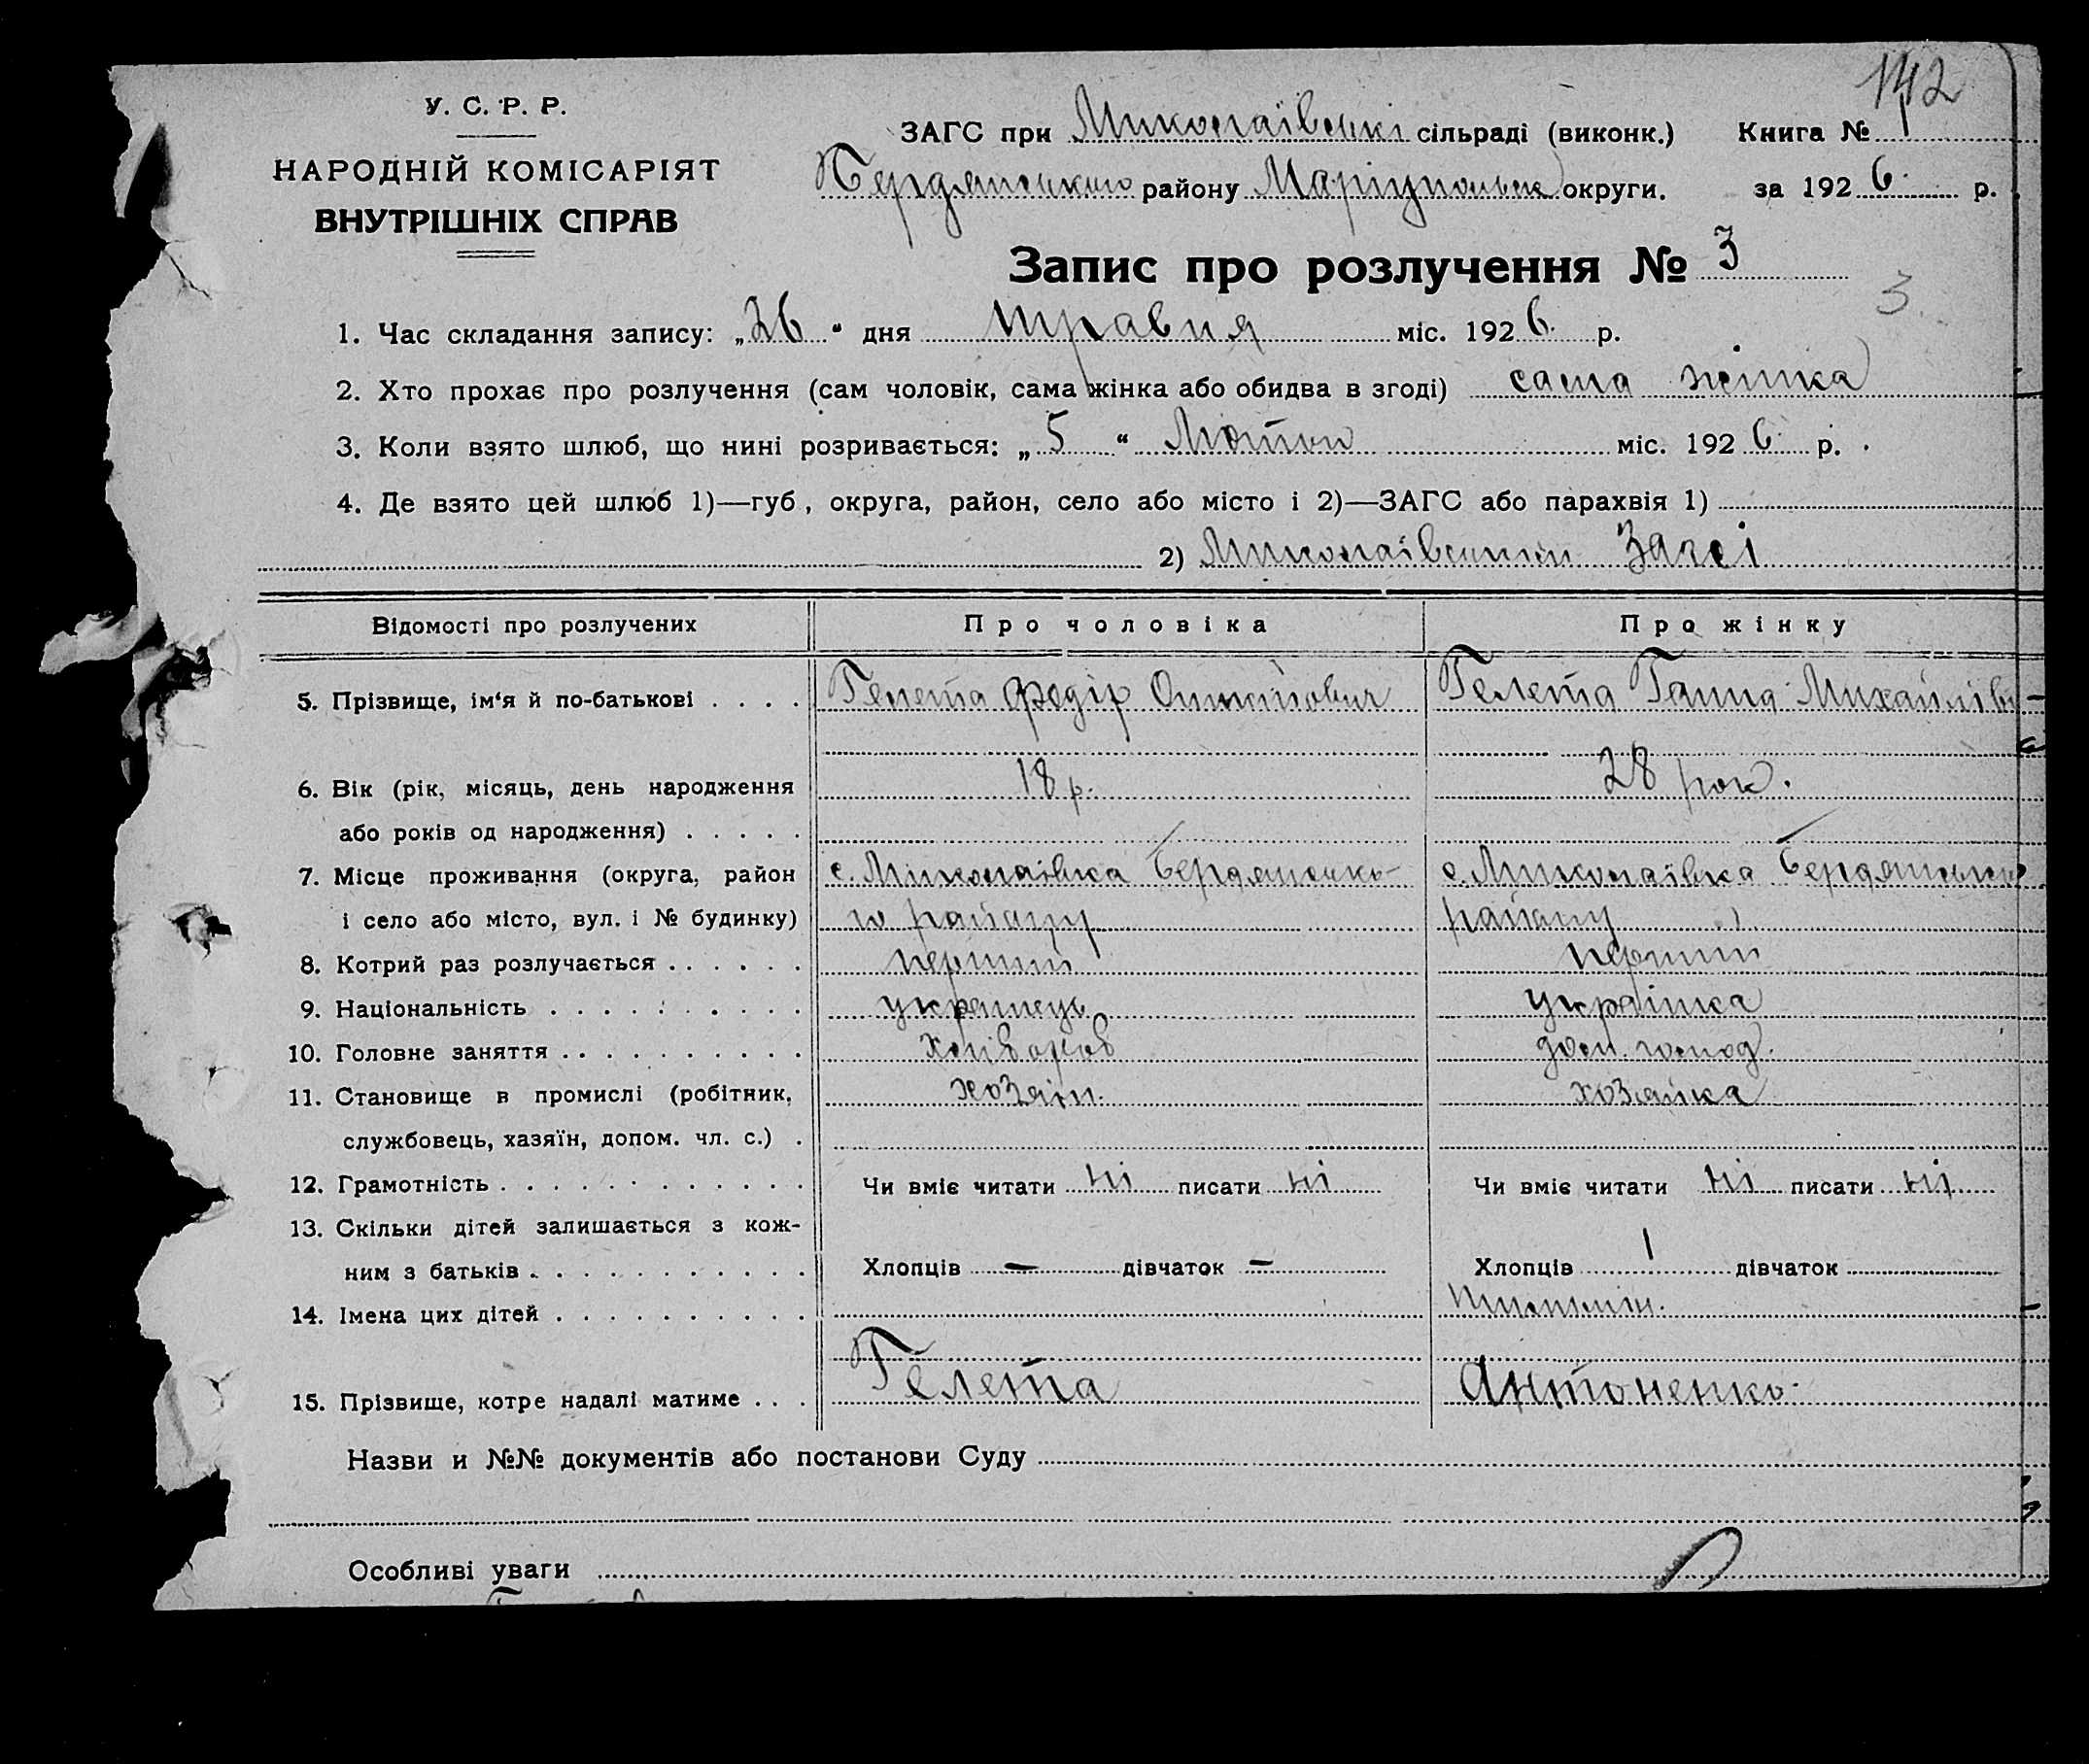 142
У. С. Р. Р.
НАРОДНІЙ КОМІСАРІЯТ
ВНУТРІШНІХ СПРАВ
ЗАГС при Миколаївські сільраді (виконк.) Книга № 1
Бердянського району Маріупольск округи. за 1926 р.
Запис про розлучення № 3
3
1. Час складання запису: „26“ дня травня міс. 1926 р.
2. Хто прохає про розлучення (сам чоловік, сама жінка або обидва в згоді) сама жінка
3. Коли взято шлюб, що нині розривається: „5“ міс. 1926 р.
4. Де взято цей шлюб 1)—губ, округа, район, село або місто і 2)—ЗАГС або парахвія 1)
2) Загсі
Відомості про розлучених Про чоловіка Про жінку
5. Прізвище, ім‘я й по-батькові . . . . Гелета Федір Гелета Ганна Михайлівн-
а
6. Вік (рік, місяць, день народження 18 р. 28 рок.
або років од народження) . . . . .
7. Місце проживання (округа, район с. Миколаївка Бердянсько- с. Миколаївка Бердянсько
і село або місто, вул. і № будинку) го району району
8. Котрий раз розлучається . . . . . . перший перший
9. Національність . . . . . . . . . . українець українка
10. Головне заняття . . . . . . . . . . хлібороб дом. господ.
11. Становище в промислі (робітник, хозяїн. хозяйка
службовець, хазяїн, допом. чл. с.) .
12. Грамотність . . . . . . . . . . . . Чи вміє читати ні писати ні Чи вміє читати ні писати ні
13. Скільки дітей залишається з кож-
ним з батьків . . . . . . . . . . . Хлопців — дівчаток — Хлопців 1 дівчаток
14. Імена цих дітей . . . . . . . . . .
15. Прізвище, котре надалі матиме . . . Гелета Антоненко.
Назви и №№ документів або постанови Суду
Особливі уваги